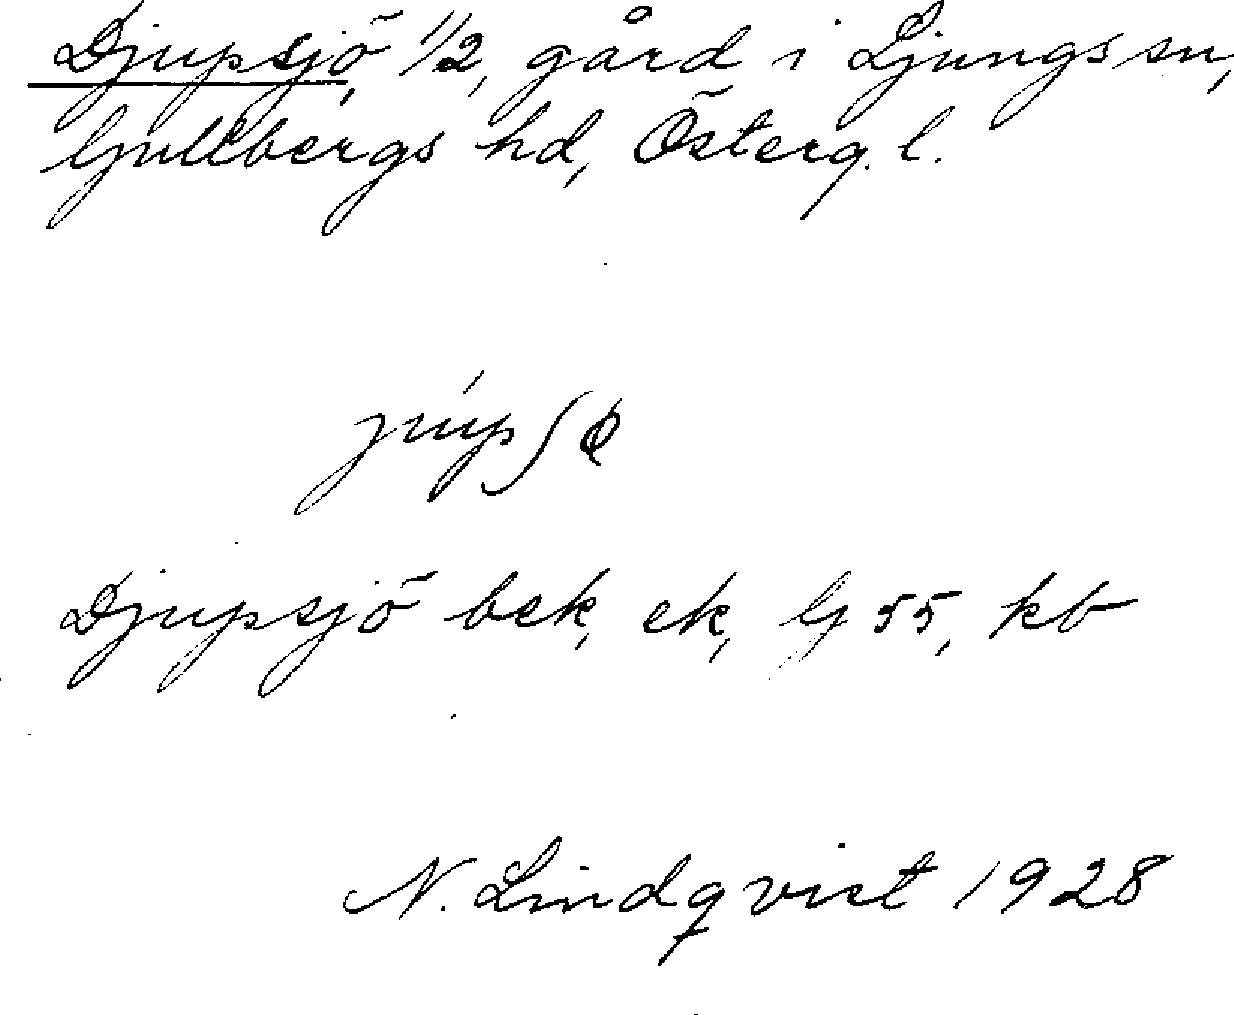 Djupsjö, 1/2, gård i Ljungs sn,
Gullbergs hd, Österg. l.
júpʃφ
Djupsjö bek, ek, G 55, kb
N. Lindqvist 1928